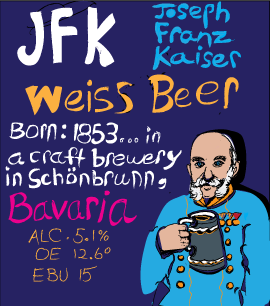 JFK
Joseph
Franz
Kaiser
Weiss Beer
Born: 1853... in
a craft brewery
in Schönbrunn,
Bavaria
ALC. 5.1%
OE 12.6°
EBU 15